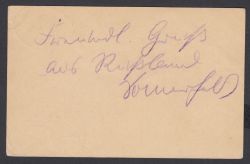 Freundl. Gruß
aus Rußland
Sommerfeld